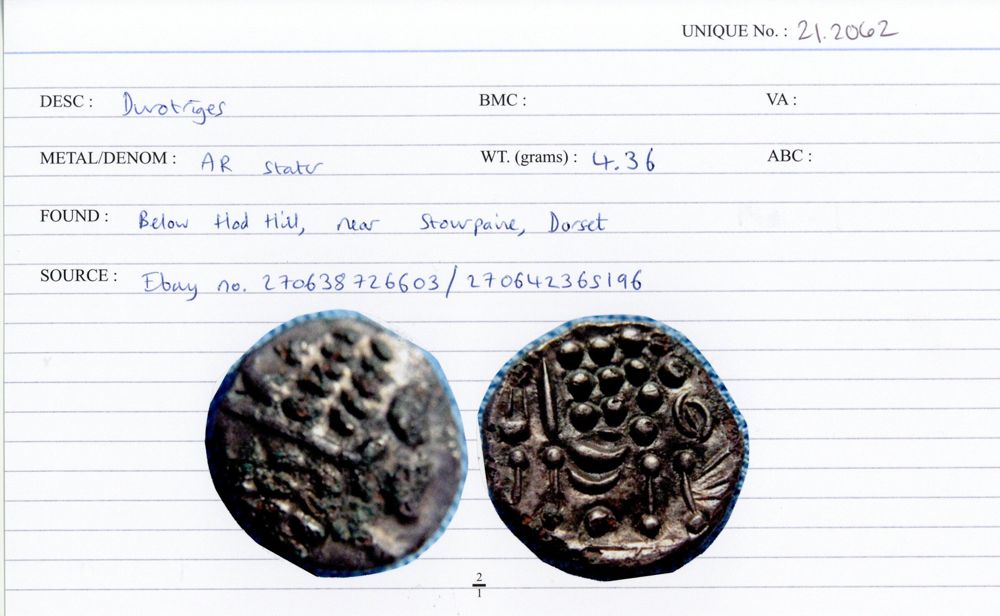 UNIQUE No. : 21.2062
DESC : Durotriges BMC : VA :
METAL/DENOM : AR stater WT. (grams) : 4.36 ABC :
FOUND : Below Hod Hill, near Stourpaine, Dorset
SOURCE : Ebay no. 270638726603/270642365196
2
1